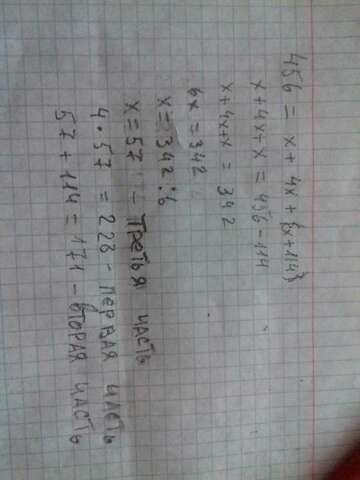 456 = x + 4x + {x + 114}
x + 4x + x = 456 - 114
x + 4x + x = 342
6x = 342
x = 342 : 6
x = 57 - третья часть
4 · 57 = 228 - первая часть
57 + 114 = 171 - вторая часть